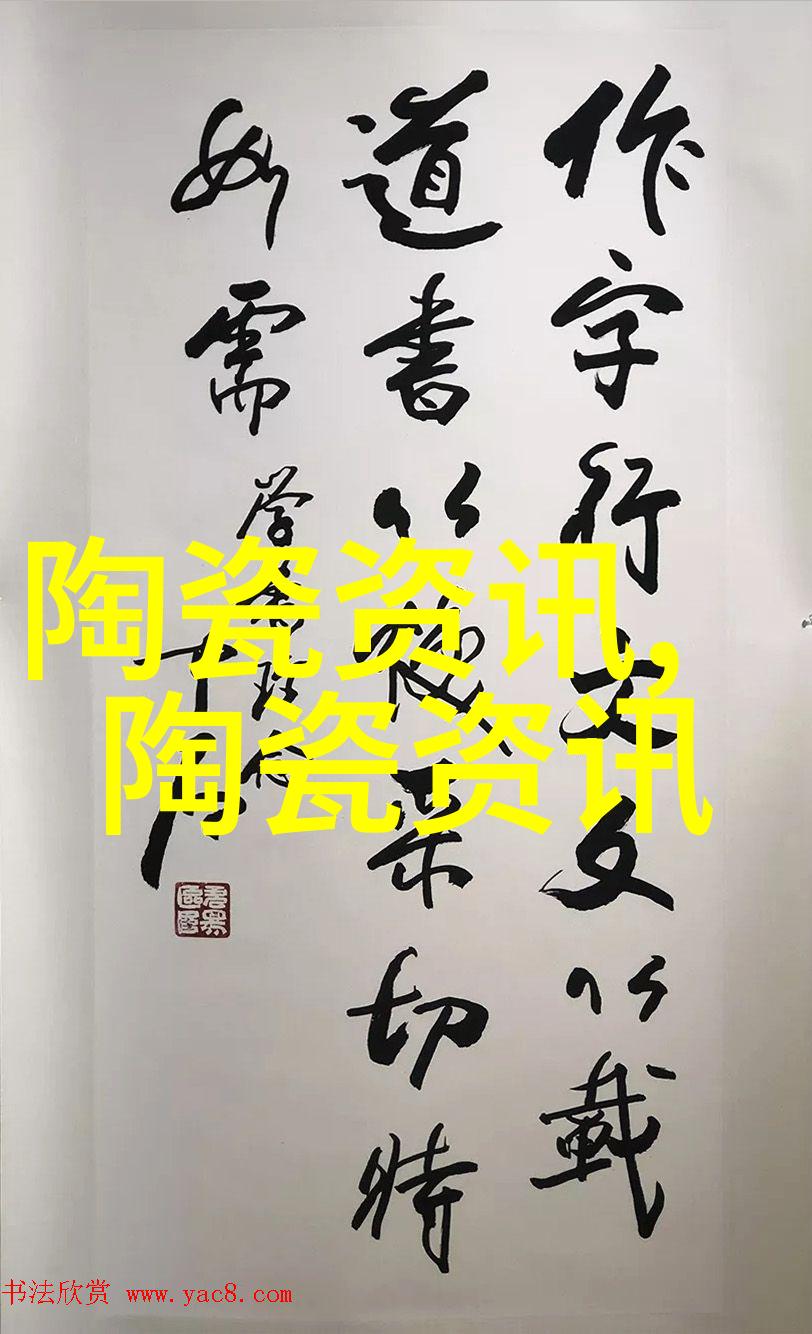 作字行文文以載
道書以采切時
如需
陶瓷资讯,
陶瓷资讯
书法欣赏 www.yac8.com